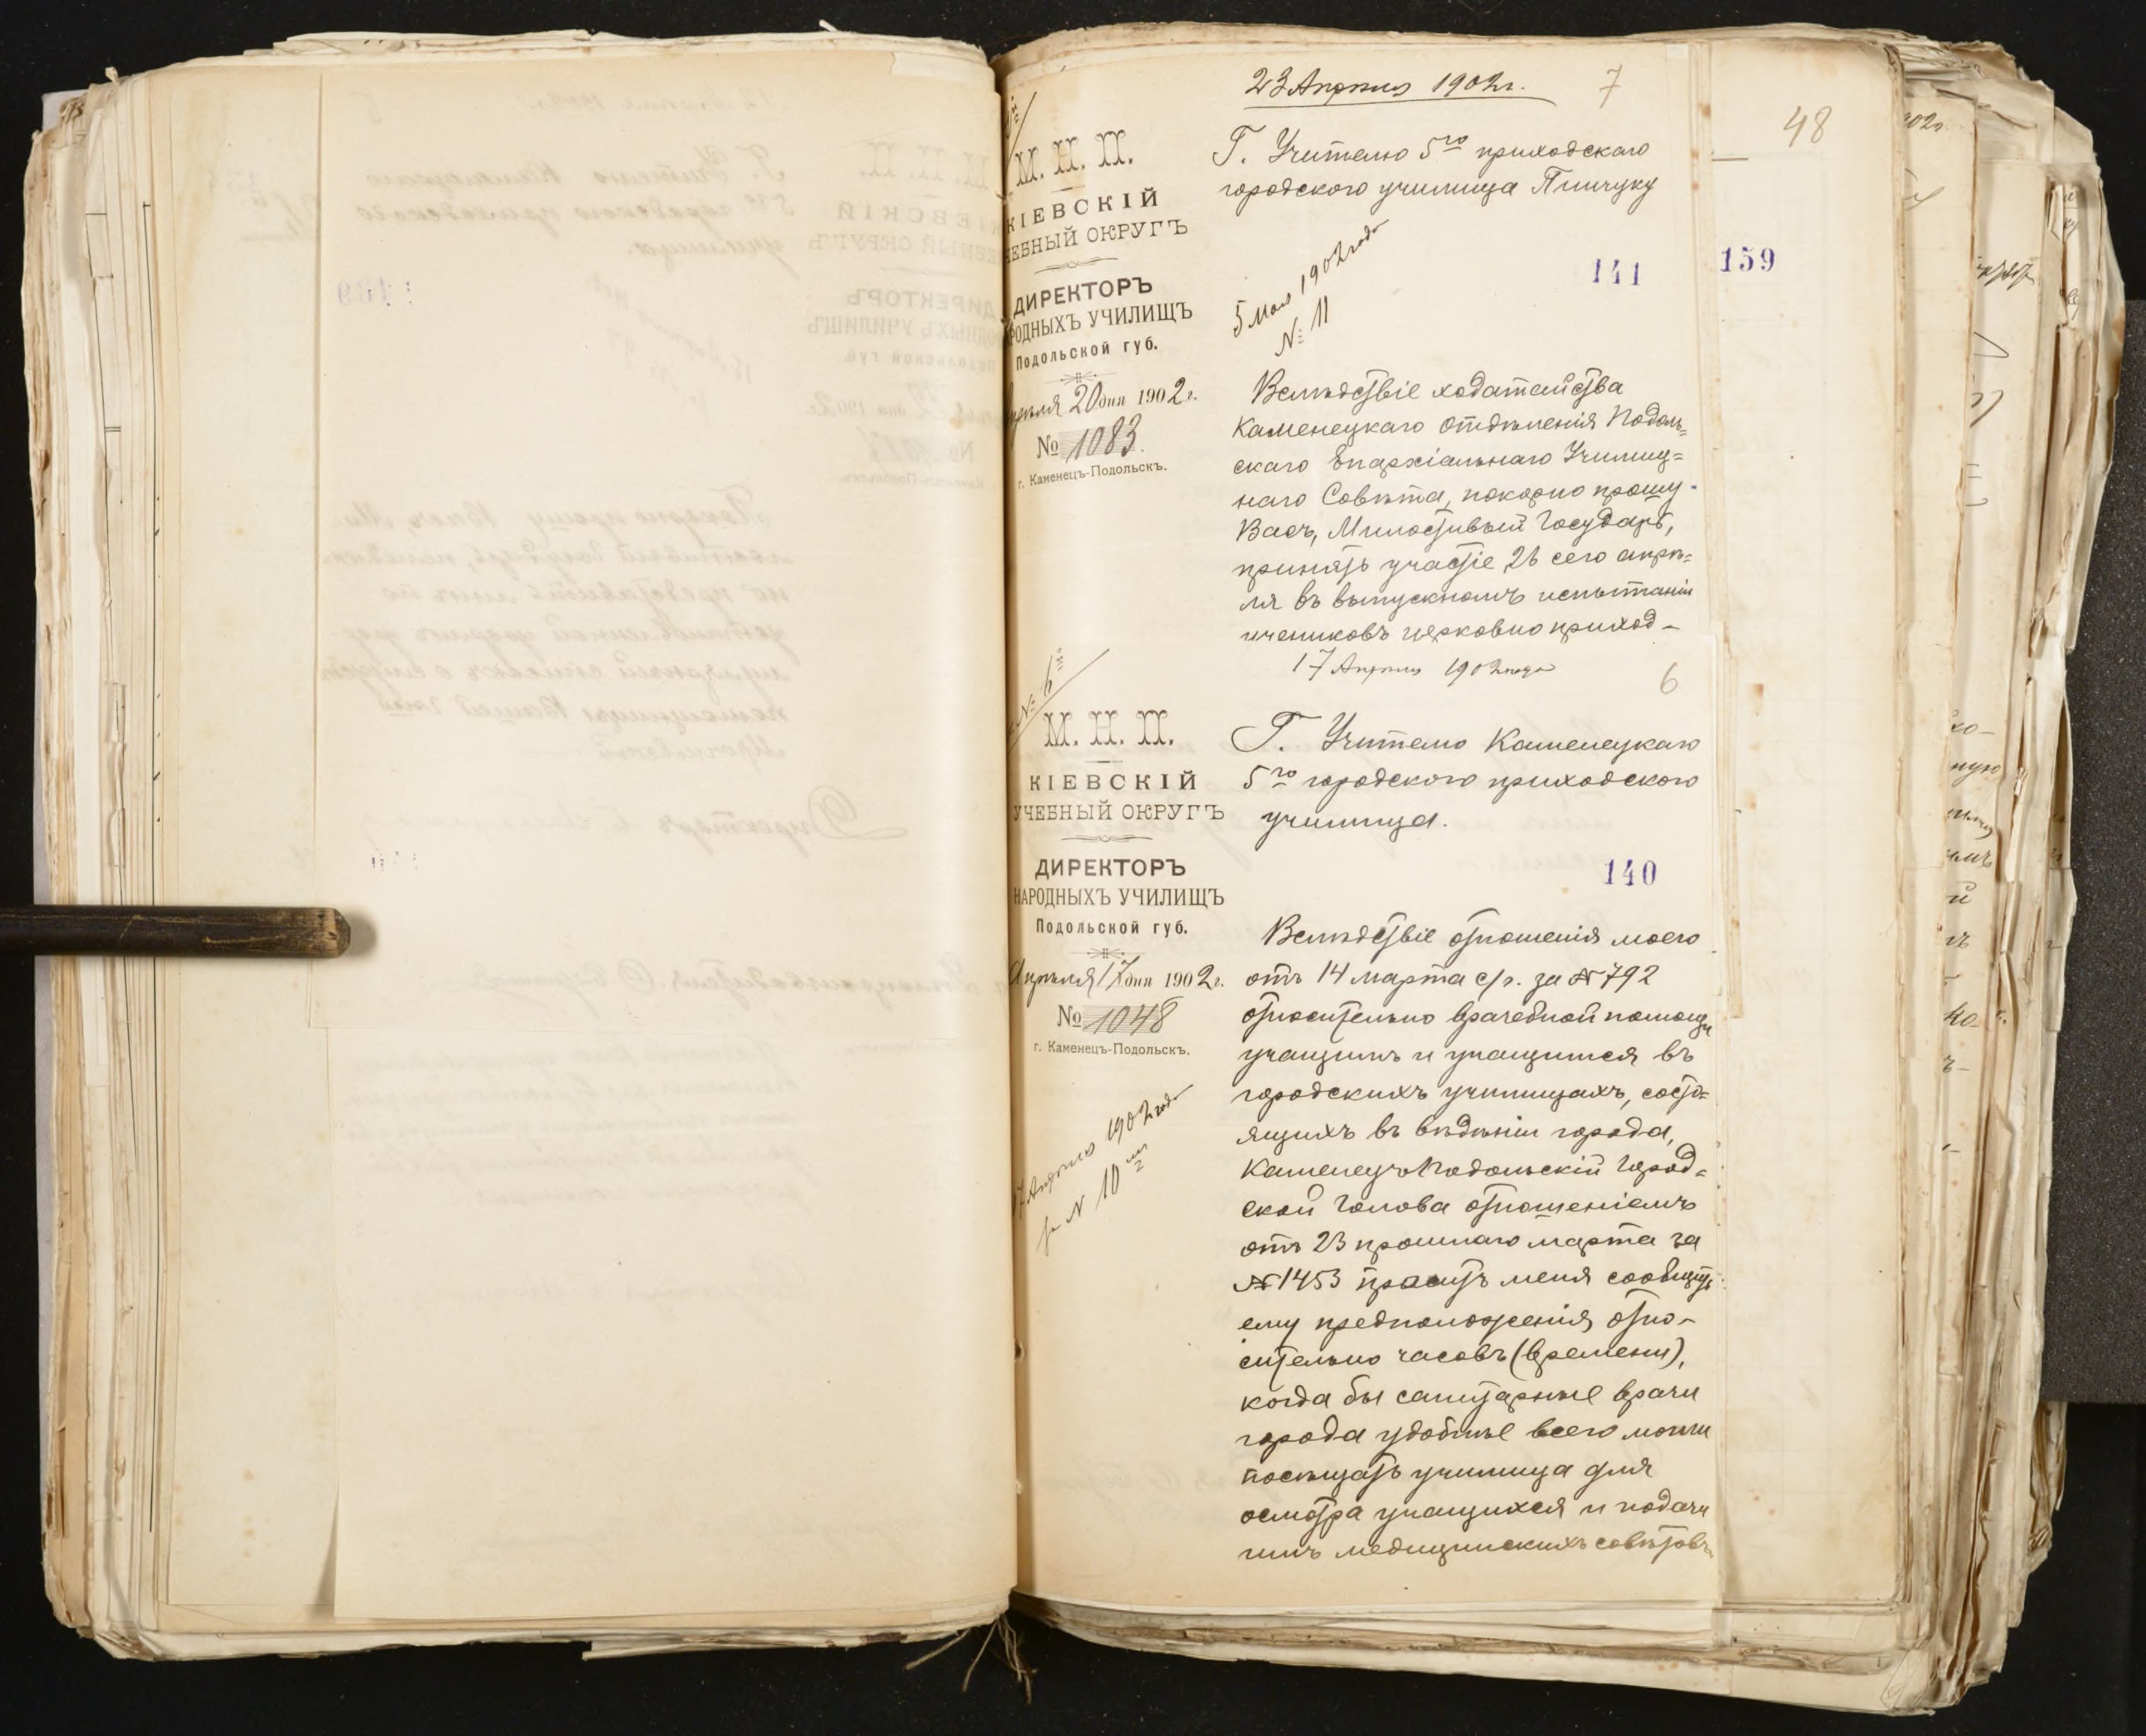 23 Апрѣля 1902 г.
7
48
М. Н. П.
КІЕВСКІЙ
УЧЕБНЫЙ ОКРУГЪ
ДИРЕКТОРЪ
НАРОДНЫХЪ УЧИЛИЩЪ
Подольской губ.
Апрѣля 20 дня 1902 г.
№ 1083.
г. Каменецъ-Подольскъ.
Г. Учителю 5го приходскаго
городского училища Пинчуку
5 Мая 1902 года
№ 11
141
159
Вслѣдствіе ходатайства
Каменецкаго Отдѣленія Подоль=
скаго Епархіальнаго Училищ=
наго Совѣта, покорно прошу
Васъ, Милостивый Государь,
принять участіе 26 сего апрѣ=
ля въ выпускномъ испытаніи
учениковъ церковно приход-
17 Апрѣля 1902 года
6
№ 6й
М. Н. П.
КІЕВСКІЙ
УЧЕБНЫЙ ОКРУГЪ
ДИРЕКТОРЪ
НАРОДНЫХЪ УЧИЛИЩЪ
Подольской губ.
Апрѣля 17 дня 1902 г.
№ 1048
г. Каменецъ-Подольскъ.
17 Апрѣля 1902 года
за № 10
Г. Учителю Каменецкаго
5го городского приходского
училища.
140
Вслѣдствіе отношенія моего
отъ 14 марта с/г. за № 792
относительно врачебной помощи
учащимъ и учащимся въ
городскихъ училищахъ, состо=
ящихъ въ вѣдѣніи города,
Каменецъ-Подольскій Город=
ской Голова отношеніемъ
отъ 23 прошлаго марта за
№ 1453 проситъ меня сообщить
ему предположенія отно-
сительно часовъ (времени),
когда бы санитарные врачи
города удобнѣе всего могли
посѣщать училища для
осмотра учащихся и подачи
имъ медицинскихъ совѣтовъ